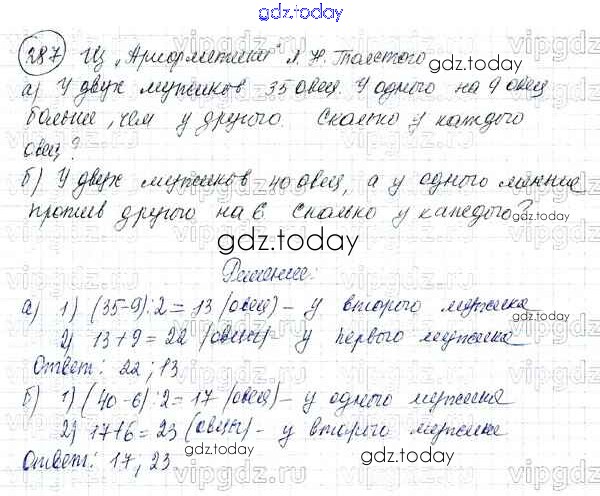 gdz.today
287 Из „Арифметики“ Л. Н. Толстого
gdz.today
а) У двух мужиков 35 овец. У одного на 9 овец
больше, чем у другого. Сколько у каждого
овец?
б) У двух мужиков 40 овец, а у одного меньше
против другого на 6. Сколько у каждого?
gdz.today
gdz.today
Решение:
а) 1) (35-9):2 = 13 (овец) – у второго мужика
2) 13+9 = 22 (овцы) – у первого мужика
gdz.today
Ответ: 22; 13
б) 1) (40-6):2 = 17 (овец) – у одного мужика
2) 17+6 = 23 (овцы) – у второго мужика
Ответ: 17; 23
gdz.today